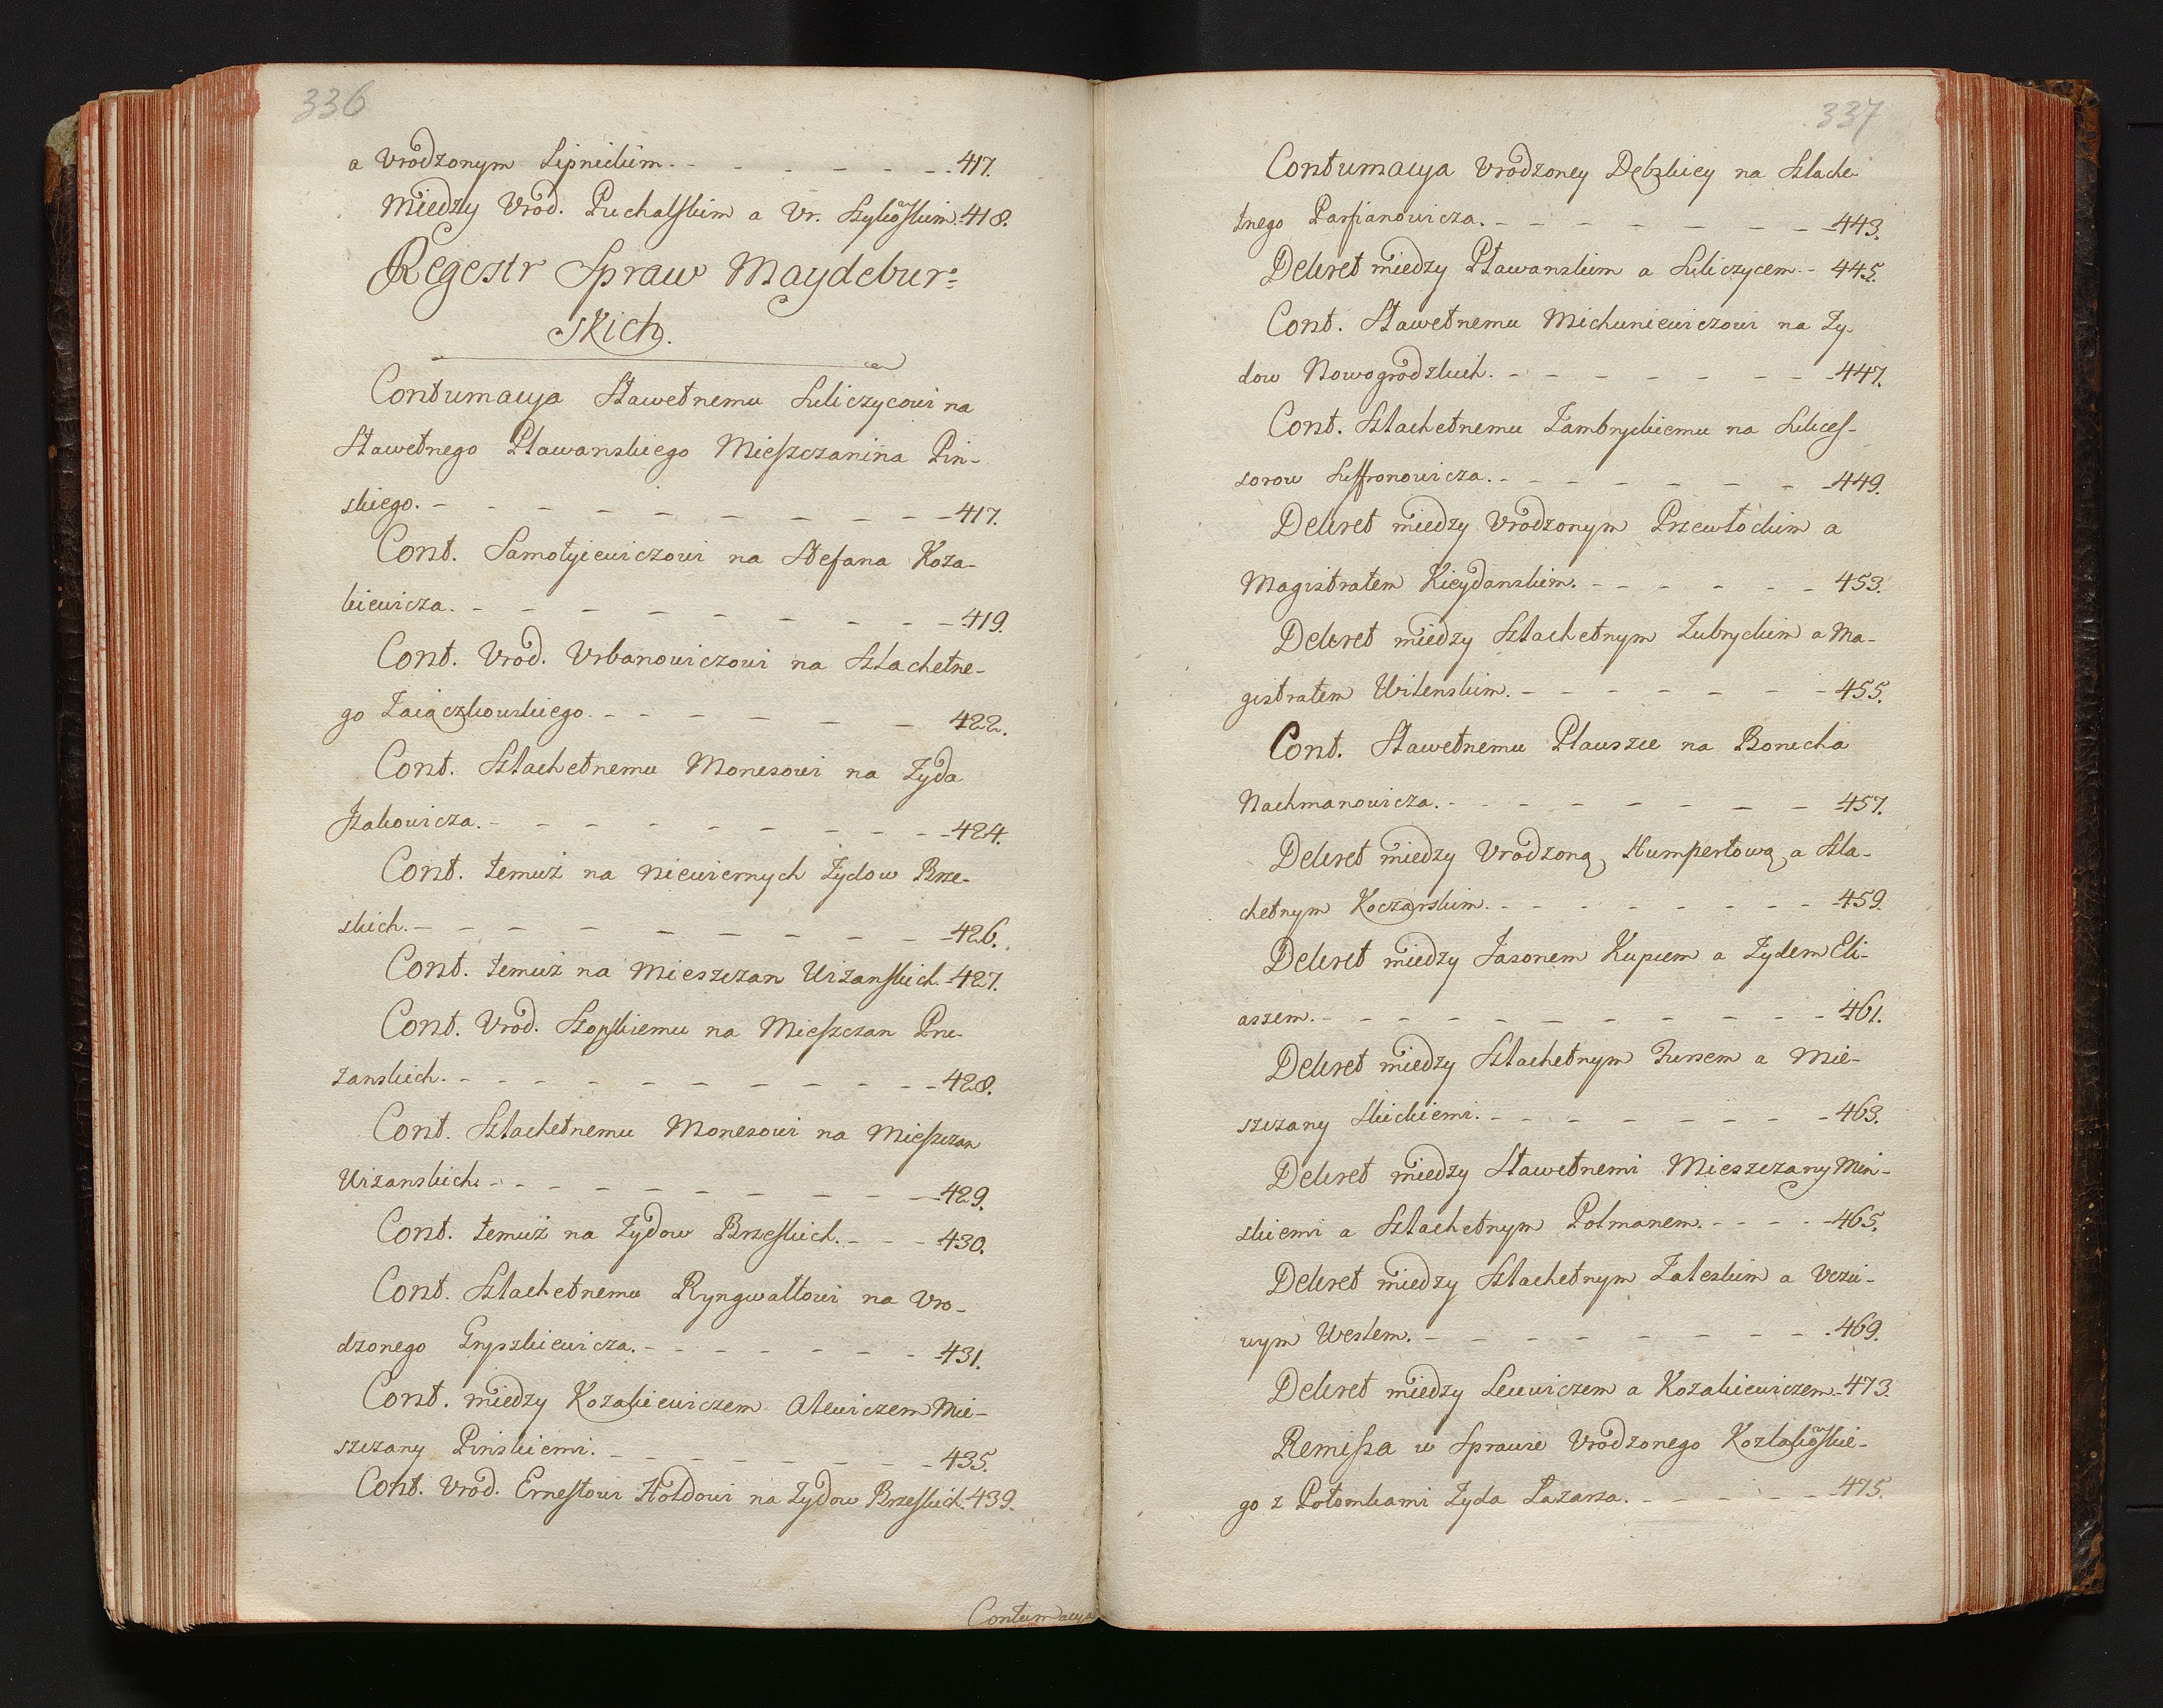 336
a Vrodzonym Lipnickim. - - - - - - 417.
Między Vrod. Puchalskim a Vr. Szykoskim. 418.
Regestr Spraw Maydebur=
skich.
Contumacya Sławetnemu Suliczycowi na
Sławetnego Pławanskiego Mieszczanina Pin-
skiego. - - - - - - - - - 417.
Cont. Samotyiewiczowi na Stefana Koza-
kiewicza. - - - - - - - - 419.
Cont. Vrod. Vrbanowiczowi na Szlachetne-
go Zaiączkowskiego. - - - - - - 422.
Cont. Szlachetnemu Monesowi na Żyda
Jzakowicza. - - - - - - - - 424.
Cont. temuż na niewiernych Żydow Brze-
skich. - - - - - - - - - 426.
Cont. temuż na Mieszczan Uiżanskich. 427.
Cont. Vrod. Szopskiemu na Mieszczan Pru-
żanskich. - - - - - - - - - 428.
Cont. Szlachetnemu Monesowi na Mieszczan
Uiżanskich. - - - - - - - - 429.
Cont. temuż na Żydow Brzeskich. - - - 430.
Cont. Szlachetnemu Ryngwałtowi na Vro-
dzonego Gryszkiewicza. - - - - - - 431.
Cont. między Kozakiewiczem Alewiczem Mie-
szczany Pinskiemi. - - - - - - 435.
Cont. Vrod. Ernestowi Hołdowi na Żydow Brzeskich. 439.
Contumacya
337
Contumacya Vrodzoney Dębskiey na Szlache-
tnego Parfianowicza. - - - - - - - 443.
Dekret między Pławanskim a Suliczycem. - 445.
Cont. Sławetnemu Michuniewiczowi na Ży-
dow Nowogrodzkich. - - - - - - - 447.
Cont. Szlachetnemu Zambrzyckiemu na Sukces-
sorow Suffronowicza. - - - - - - 449.
Dekret między Vrodzonym Przewłockim a
Magistratem Kieydanskim. - - - - - 453.
Dekret między Szlachetnym Zubryckim a Ma-
gistratem Wilenskim. - - - - - - 455.
Cont. Sławetnemu Plauszce na Borucha
Nachmanowicza. - - - - - - - 457.
Dekret między Vrodzoną Humpertową a Szla-
chetnym Koczarskim. - - - - - - - 459.
Dekret między Jasonem Kupcem a Żydem Eli-
aszem. - - - - - - - - - 461.
Dekret między Szlachetnym Jursem a Mie-
szczany Słuckiemi. - - - - - - - 463.
Dekret między Sławetnemi Mieszczany Min-
skiemi a Szlachetnym Polmanem. - - - - 465.
Dekret między Szlachetnym Zaleskim a Vczci-
wym Westem. - - - - - - - - 469.
Dekret między Lewiczem a Kozakiewiczem. 473.
Remissa w Sprawie Vrodzonego Kozlakoskie-
go z Potomkami Żyda Łazarza. - - - - - 475.